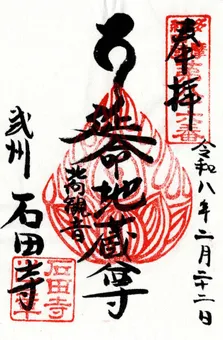 奉拝
令和八年二月二十二日
延命地蔵尊
北向観音
武州 石田寺
石田寺